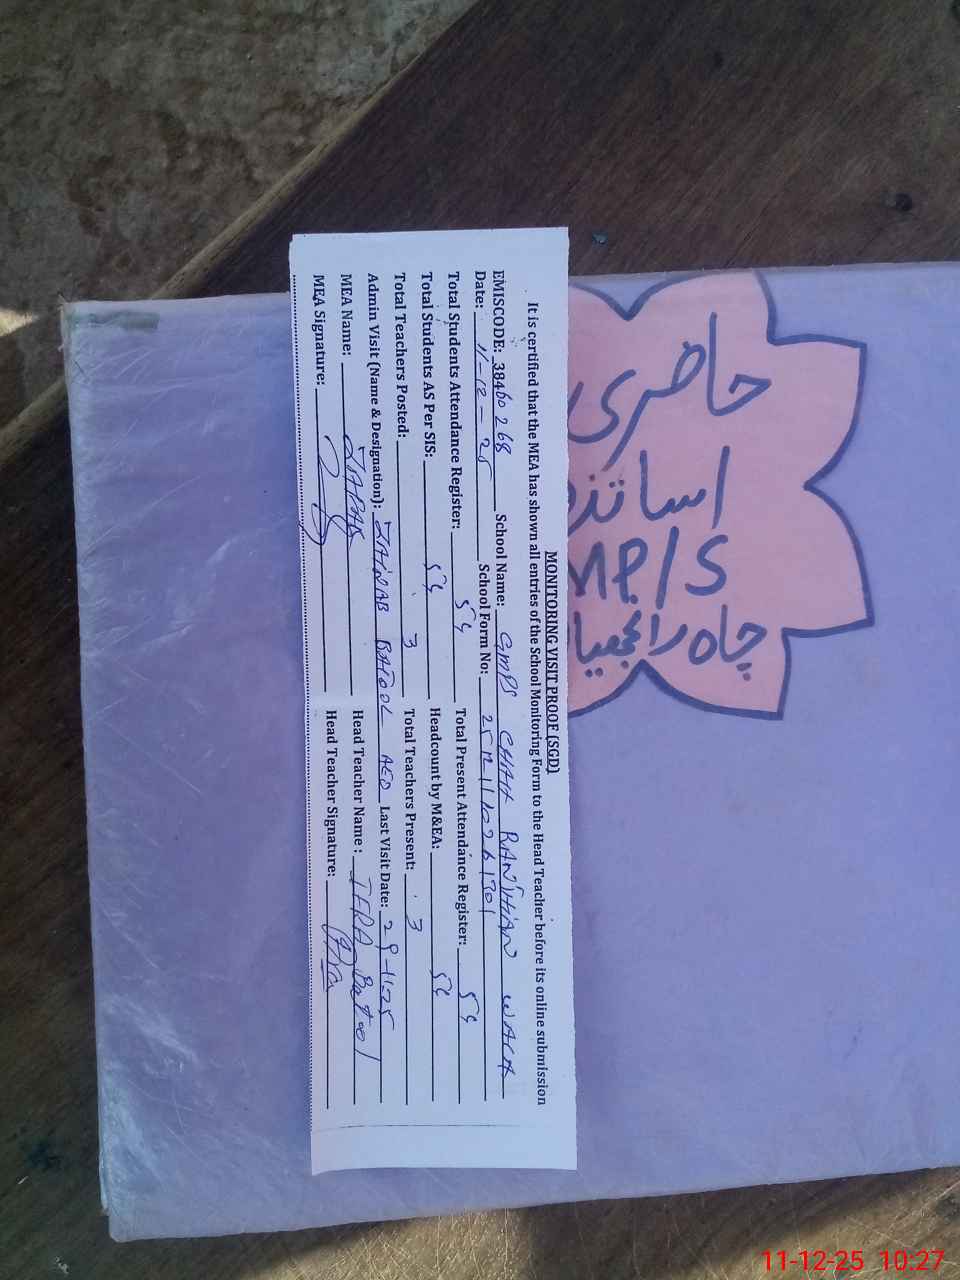 MONITORING VISIT PROOF (SGD)
It is certified that the MEA has shown all entries of the School Monitoring Form to the Head Teacher before its online submission
EMISCODE: 38460268 School Name: GMPS CHAH RANJHIAN WALA
Date: 11-12-25 School Form No:
Total Students Attendance Register: 54 Total Present Attendance Register: 54
Total Students AS Per SIS: 54 Headcount by M&EA: 54
Total Teachers Posted: 3 Total Teachers Present: 3
Admin Visit (Name & Designation): ZAINAB BATOOL AEO Last Visit Date: 29-11-25
MEA Name: Head Teacher Name: IFRA Batool
MEA Signature: Head Teacher Signature:
حاضری
اساتذ
MP/S
چاہ رانجھیا
11-12-25 10:27